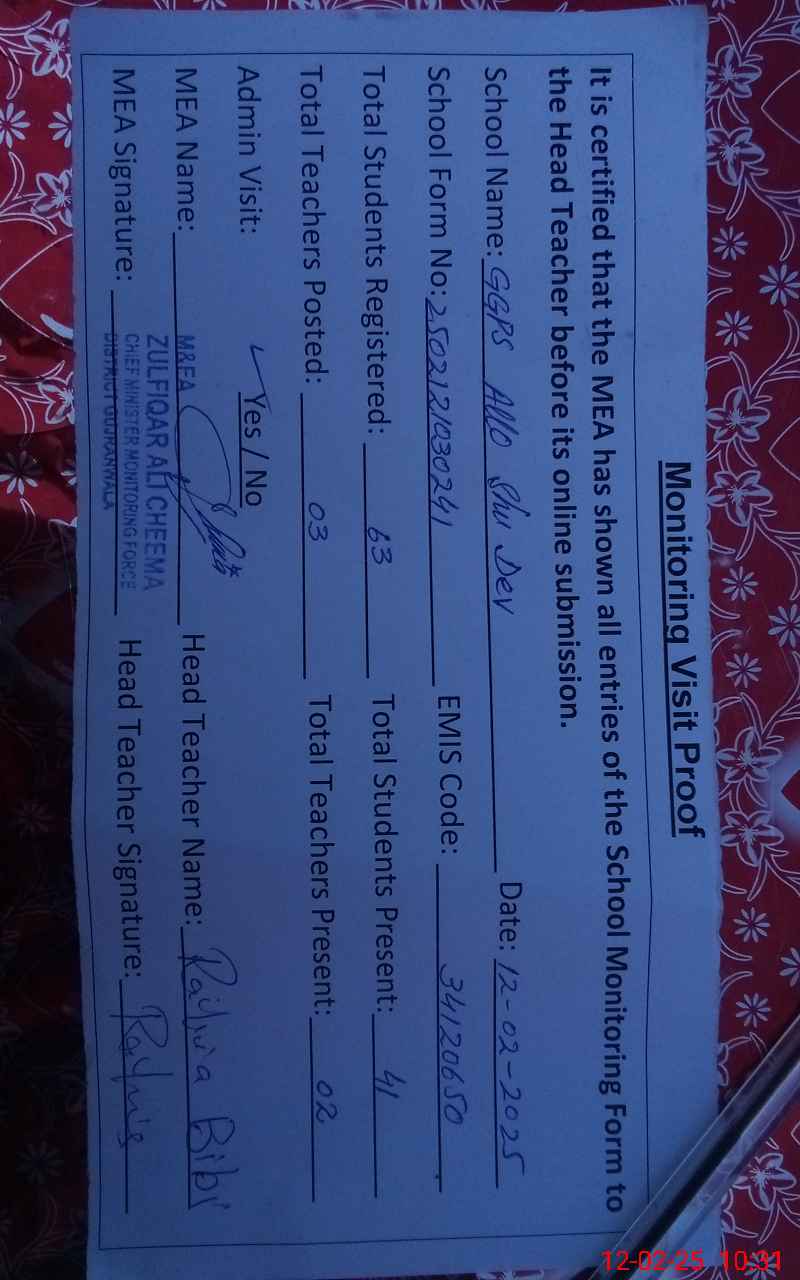 Monitoring Visit Proof
It is certified that the MEA has shown all entries of the School Monitoring Form to
the Head Teacher before its online submission.
School Name: GGPS Allo Shu Dev Date: 12-02-2025
School Form No: 2502121030241 EMIS Code: 34120650
Total Students Registered: 63 Total Students Present: 41
Total Teachers Posted: 03 Total Teachers Present: 02
Admin Visit: ✓ Yes / No
MEA Name: M&EA Head Teacher Name: Bibi
ZULFIQAR ALI CHEEMA
CHIEF MINISTER MONITORING FORCE
MEA Signature: DISTRICT GUJRANWALA Head Teacher Signature:
12-02-25 10:31